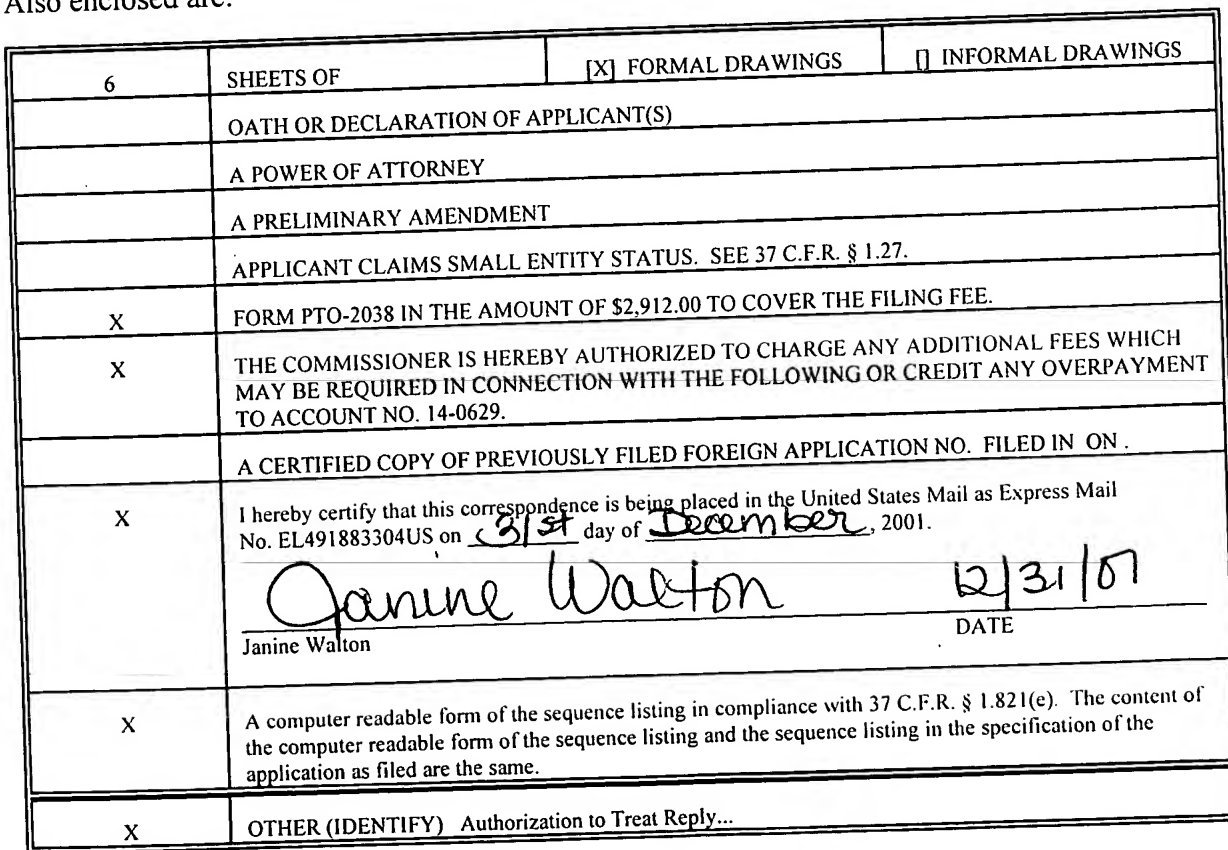 Also enclosed are:
6 SHEETS OF [X] FORMAL DRAWINGS [] INFORMAL DRAWINGS
OATH OR DECLARATION OF APPLICANT(S)
A POWER OF ATTORNEY
A PRELIMINARY AMENDMENT
APPLICANT CLAIMS SMALL ENTITY STATUS. SEE 37 C.F.R. § 1.27.
X FORM PTO-2038 IN THE AMOUNT OF $2,912.00 TO COVER THE FILING FEE.
X THE COMMISSIONER IS HEREBY AUTHORIZED TO CHARGE ANY ADDITIONAL FEES WHICH
MAY BE REQUIRED IN CONNECTION WITH THE FOLLOWING OR CREDIT ANY OVERPAYMENT
TO ACCOUNT NO. 14-0629.
A CERTIFIED COPY OF PREVIOUSLY FILED FOREIGN APPLICATION NO. FILED IN ON .
X I hereby certify that this correspondence is being placed in the United States Mail as Express Mail
No. EL491883304US on 31st day of December, 2001.
Janine Walton 12/31/01
Janine Walton DATE
X A computer readable form of the sequence listing in compliance with 37 C.F.R. § 1.821(e). The content of
the computer readable form of the sequence listing and the sequence listing in the specification of the
application as filed are the same.
X OTHER (IDENTIFY) Authorization to Treat Reply...